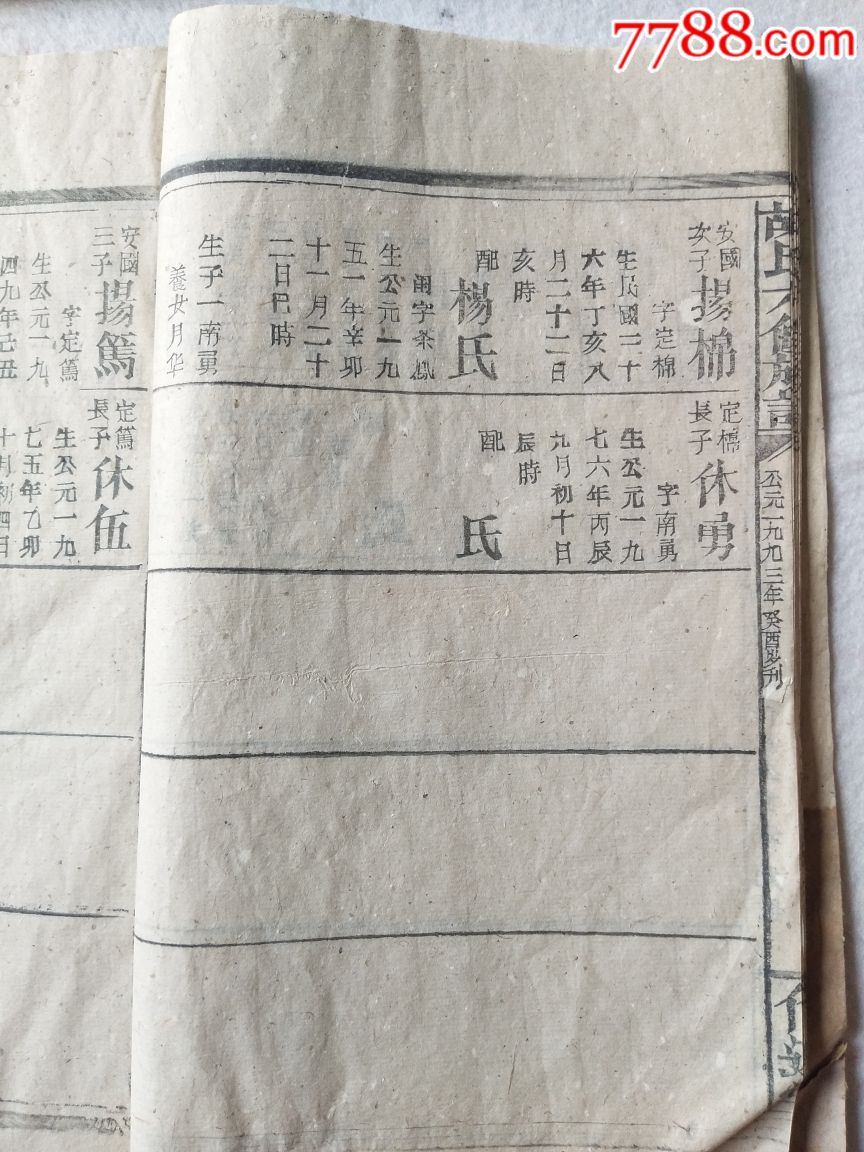 7788.com
公元一九九三年癸酉
安國
女子
揚棉
字定棉
生民國三十
六年丁亥八
月二十二日
亥時
配
楊氏
閨字茶鳳
生公元一九
五一年辛卯
十一月二十
二日巳時
生子一南勇
養女月华
定棉
長子
休勇
字南勇
生公元一九
七六年丙辰
九月初十日
辰時
配
氏
安國
三子
揚篤
字定篤
生公元一九
四九年己丑
定篤
長子
休伍
生公元一九
七五年乙卯
十月初四日